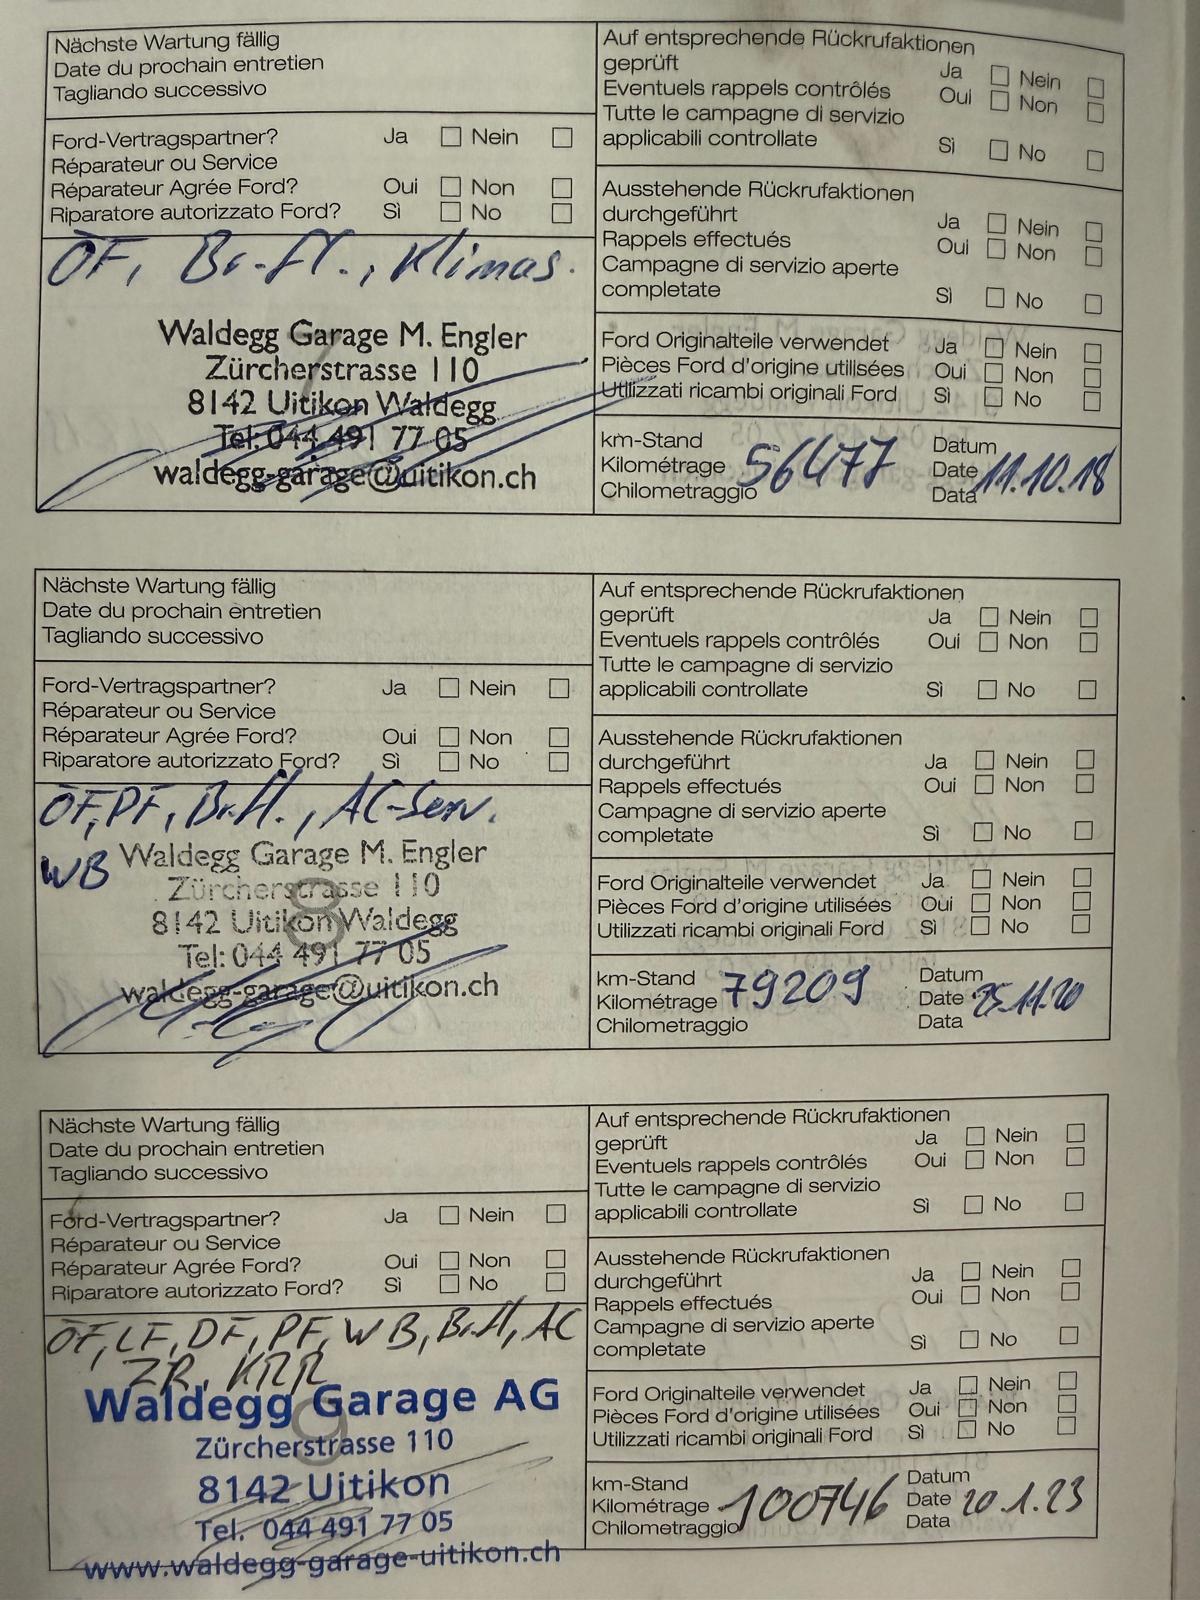 Nächste Wartung fällig
Date du prochain entretien
Tagliando successivo
Ford-Vertragspartner? Ja Nein
Réparateur ou Service
Réparateur Agrée Ford? Oui Non
Riparatore autorizzato Ford? Sì No
ÖF, Br.-fl., Klimas.
7
Waldegg Garage M. Engler
Zürcherstrasse 110
8142 Uitikon Waldegg
Tel: 044 491 77 05
waldegg-garage@uitikon.ch
Auf entsprechende Rückrufaktionen
geprüft Ja Nein
Eventuels rappels contrôlés Oui Non
Tutte le campagne di servizio
applicabili controllate Sì No
Ausstehende Rückrufaktionen
durchgeführt Ja Nein
Rappels effectués Oui Non
Campagne di servizio aperte
completate Sì No
Ford Originalteile verwendet Ja Nein
Pièces Ford d'origine utilisées Oui Non
Utilizzati ricambi originali Ford Sì No
km-Stand Datum
Kilométrage 56477 Date 11.10.18
Chilometraggio Data
Nächste Wartung fällig
Date du prochain entretien
Tagliando successivo
Ford-Vertragspartner? Ja Nein
Réparateur ou Service
Réparateur Agrée Ford? Oui Non
Riparatore autorizzato Ford? Sì No
ÖF, PF, Br.fl., AC-Serv.
WB
8
Waldegg Garage M. Engler
Zürcherstrasse 110
8142 Uitikon Waldegg
Tel: 044 491 77 05
waldegg-garage@uitikon.ch
Auf entsprechende Rückrufaktionen
geprüft Ja Nein
Eventuels rappels contrôlés Oui Non
Tutte le campagne di servizio
applicabili controllate Sì No
Ausstehende Rückrufaktionen
durchgeführt Ja Nein
Rappels effectués Oui Non
Campagne di servizio aperte
completate Sì No
Ford Originalteile verwendet Ja Nein
Pièces Ford d'origine utilisées Oui Non
Utilizzati ricambi originali Ford Sì No
km-Stand Datum
Kilométrage 79209 Date 25.11.20
Chilometraggio Data
Nächste Wartung fällig
Date du prochain entretien
Tagliando successivo
Ford-Vertragspartner? Ja Nein
Réparateur ou Service
Réparateur Agrée Ford? Oui Non
Riparatore autorizzato Ford? Sì No
ÖF, LF, DF, PF, WB, Br.fl, AC
ZR, KRR
9
Waldegg Garage AG
Zürcherstrasse 110
8142 Uitikon
Tel. 044 491 77 05
www.waldegg-garage-uitikon.ch
Auf entsprechende Rückrufaktionen
geprüft Ja Nein
Eventuels rappels contrôlés Oui Non
Tutte le campagne di servizio
applicabili controllate Sì No
Ausstehende Rückrufaktionen
durchgeführt Ja Nein
Rappels effectués Oui Non
Campagne di servizio aperte
completate Sì No
Ford Originalteile verwendet Ja Nein
Pièces Ford d'origine utilisées Oui Non
Utilizzati ricambi originali Ford Sì No
km-Stand Datum
Kilométrage 100746 Date 20.1.23
Chilometraggio Data